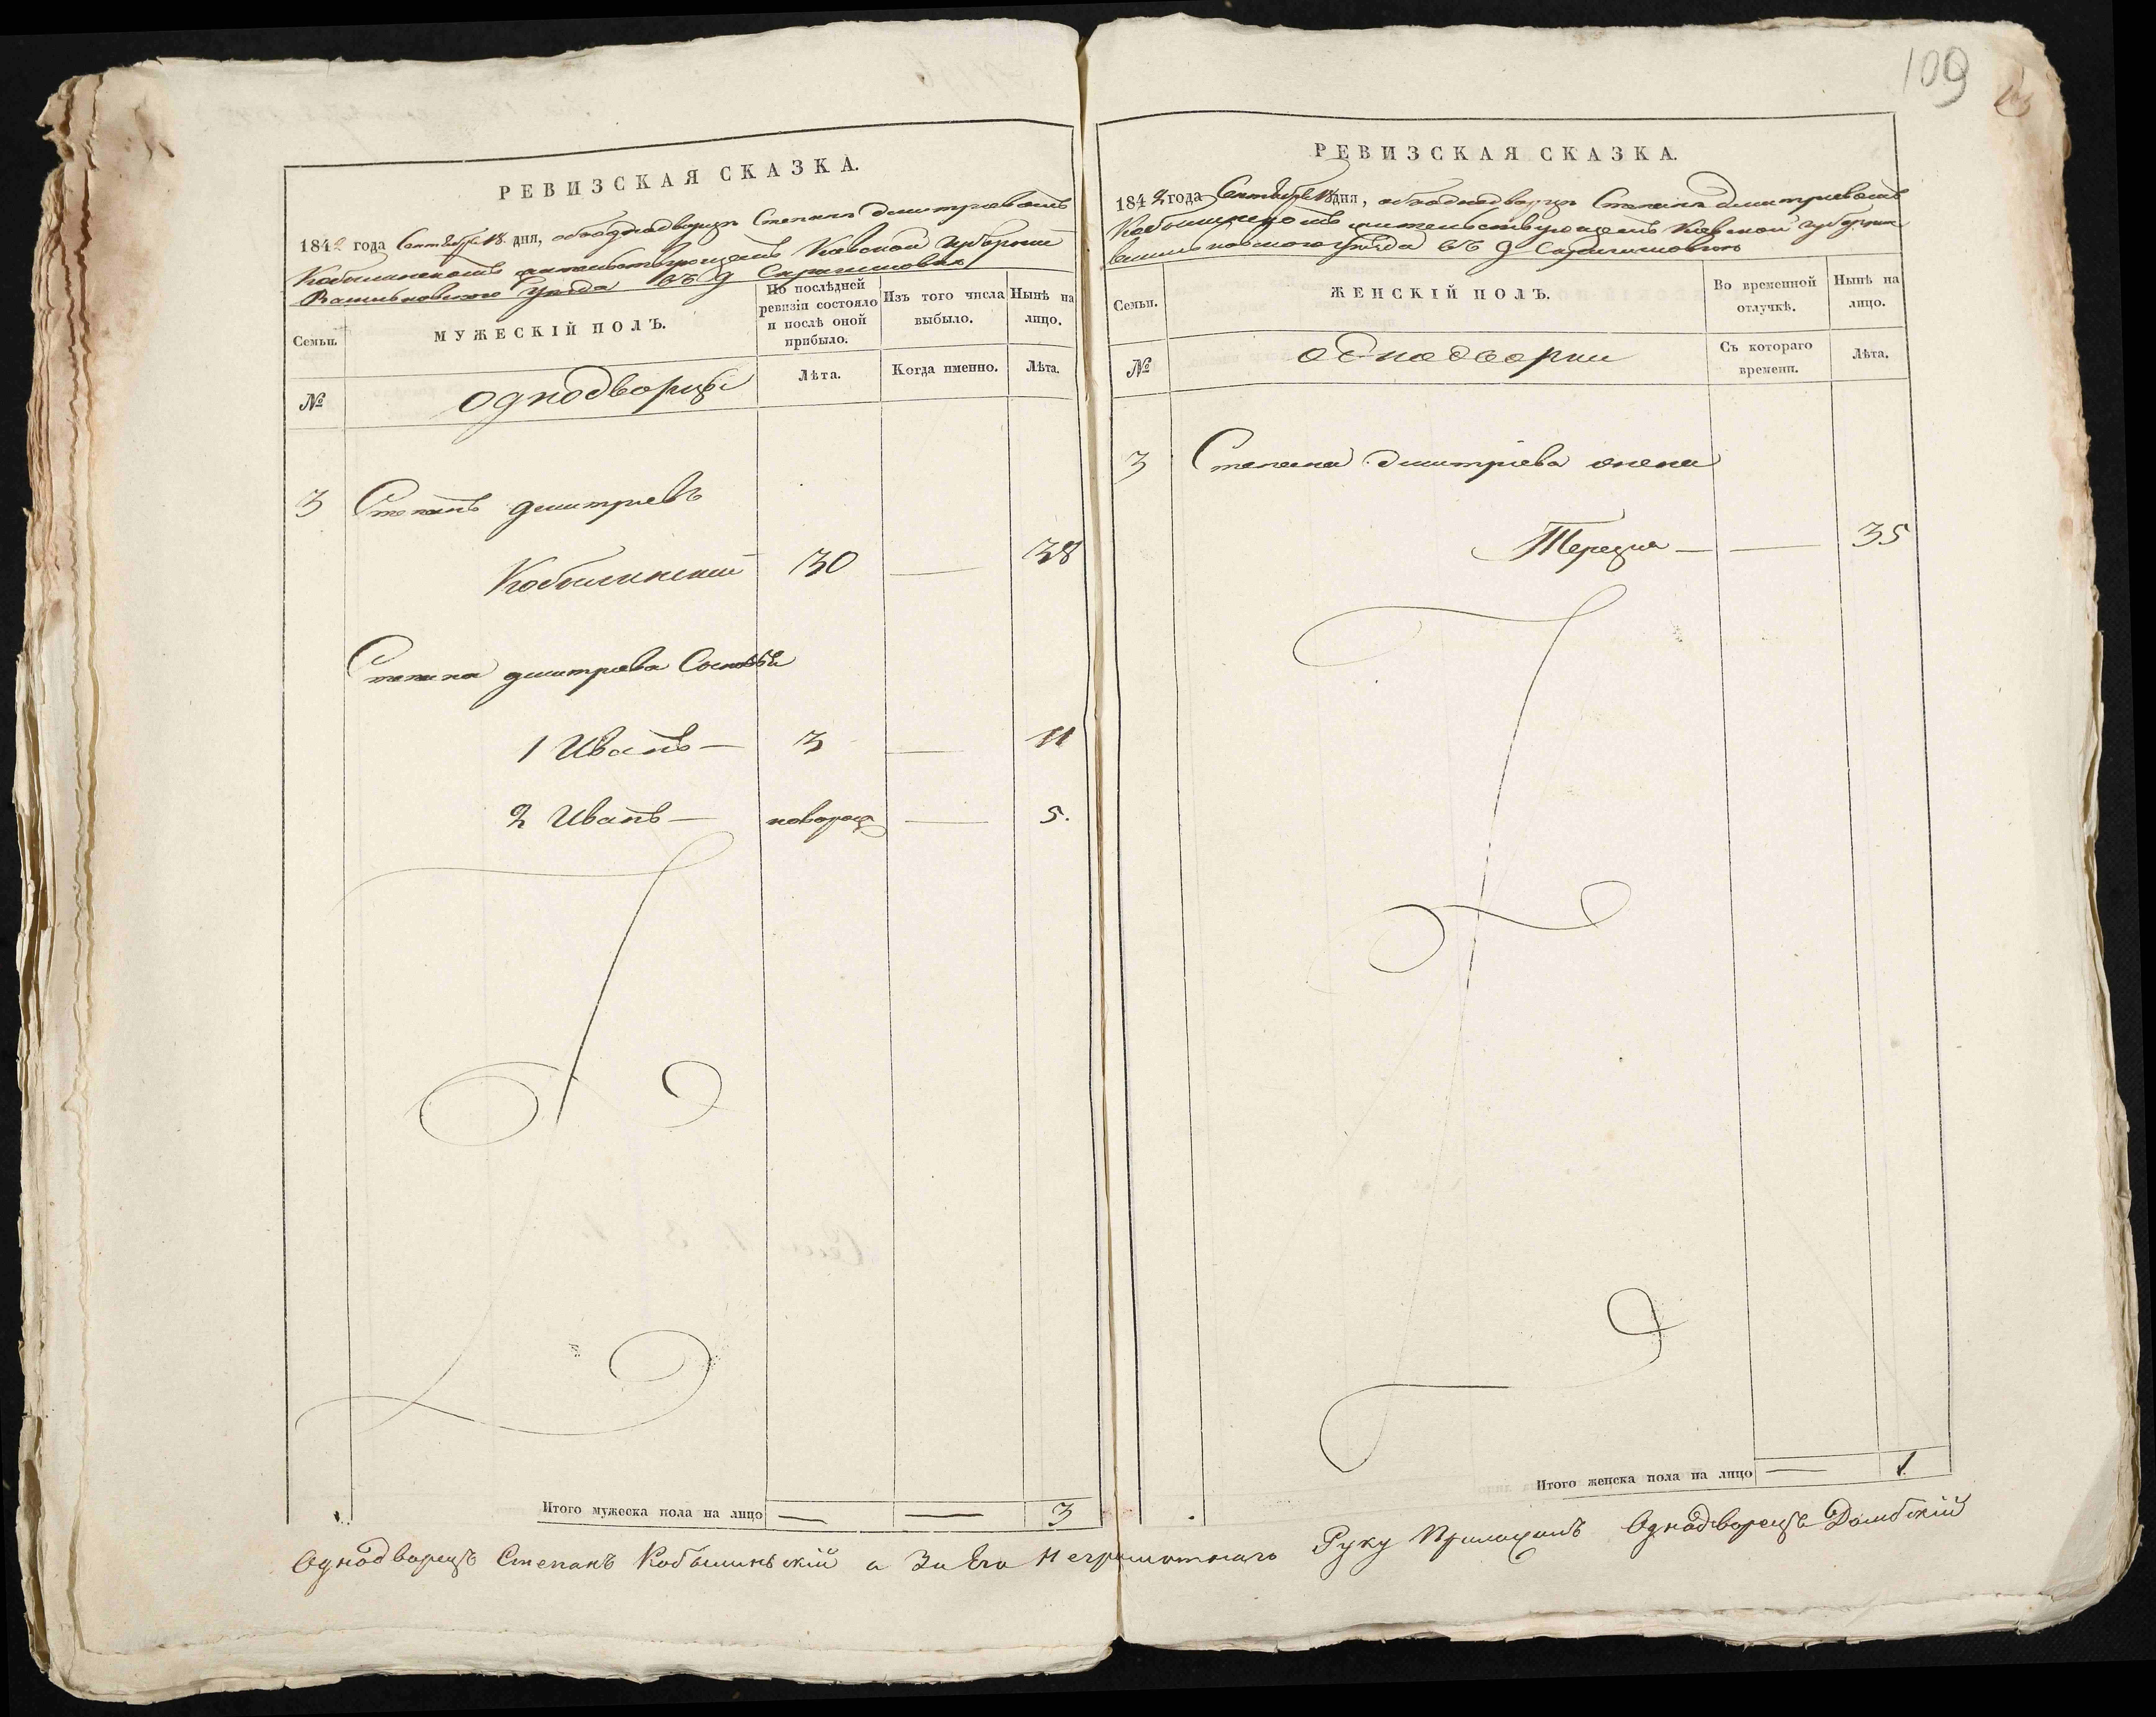 109
РЕВИЗСКАЯ СКАЗКА.
1842 года Сентября 18 дня, объ однодворцѣ Степанѣ Дмитріевомъ
Кобылинскомъ жительствующемъ Кіевской Губерніи
Васильковскаго Уѣзда въ д
Семьи.
МУЖЕСКІЙ ПОЛЪ.
По послѣдней ревизіи состояло и послѣ оной прибыло.
Изъ того числа выбыло.
Нынѣ на лицо.
№
однодворцы
Лѣта.
Когда именно.
Лѣта.
3 Степанъ дмитріевъ
Кобылинский 30 — 38
Степана дмитріева Сыновья
1 Иванъ — 3 — 11
2 Иванъ — новорож — 5.
Итого мужеска пола на лицо — — 3
РЕВИЗСКАЯ СКАЗКА.
1842 года Сентября 18 дня, объ однодворцѣ Степанѣ дмитріевомъ
Кобылинскомъ жительствующемъ Кіевской губерніи
Васильковского уѣзда въ д
Семьи.
ЖЕНСКІЙ ПОЛЪ.
Во временной отлучкѣ.
Нынѣ на лицо.
№
однодворки
Съ котораго времени.
Лѣта.
3 Степана дмитріева жена
Терезия — — 35
Итого женска пола на лицо — 1
Однодворецъ Степанъ Кобылиньскій а За Его Неграмотнаго Руку Приложилъ Однодворецъ Домбскій